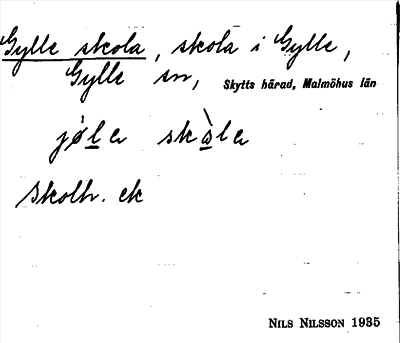 Gylle skola, skola i Gylle,
Gylle sn, Skytts härad, Malmöhus län
jø̀l̲a skò̲la
Skolh. ek
NILS NILSSON 1935